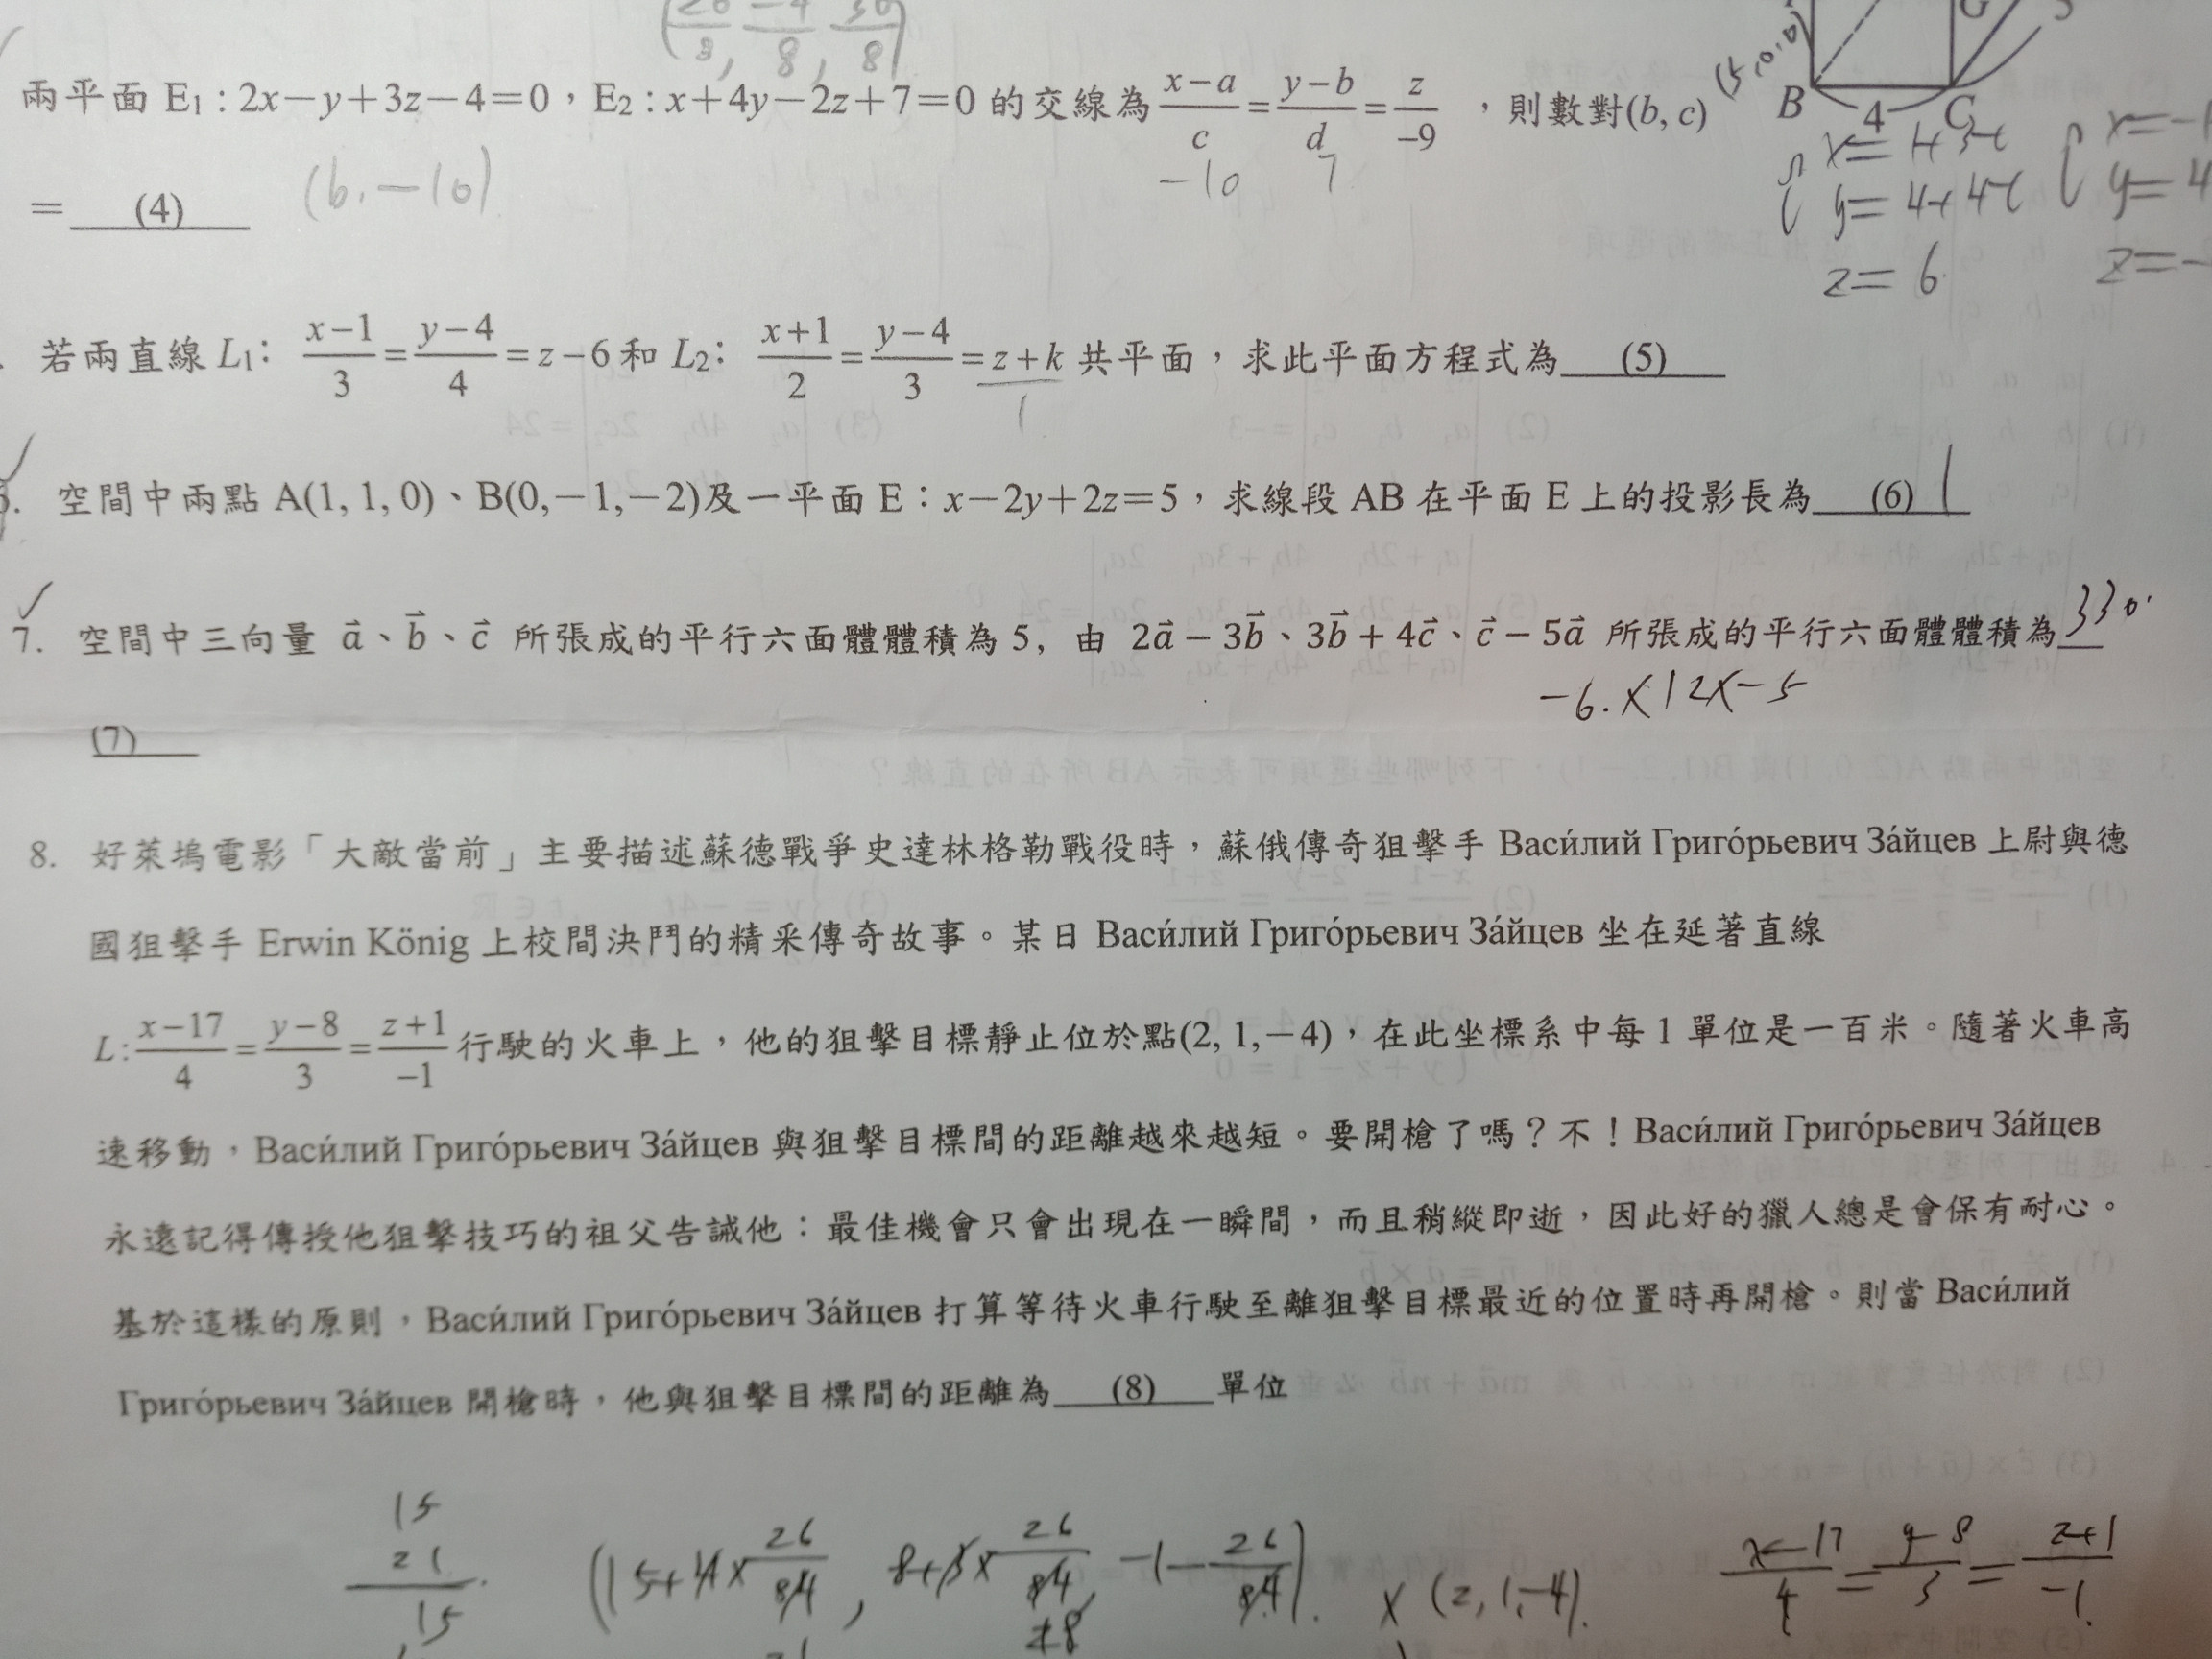 兩平面 E₁：2x－y＋3z－4＝0，E₂：x＋4y－2z＋7＝0 的交線為 (x－a)/c = (y－b)/d = z/－9 ，則數對(b, c)
－10 7
＝ (4) (b, －10)
B 4 C G
(5,0,0)
y= 4+4t
z= 6
若兩直線 L₁： (x－1)/3 = (y－4)/4 = z－6 和 L₂： (x＋1)/2 = (y－4)/3 = z＋k 共平面，求此平面方程式為 (5)
1
空間中兩點 A(1, 1, 0)、B(0,－1,－2)及一平面 E：x－2y＋2z＝5，求線段 AB 在平面 E 上的投影長為 (6) 1
7. 空間中三向量 a⃗、b⃗、c⃗ 所張成的平行六面體體積為 5, 由 2a⃗ － 3b⃗、3b⃗ + 4c⃗、c⃗ － 5a⃗ 所張成的平行六面體體積為 330
－6.×12×－5
(7)
8. 好萊塢電影「大敵當前」主要描述蘇德戰爭史達林格勒戰役時，蘇俄傳奇狙擊手 Васи́лий Григо́рьевич За́йцев 上尉與德
國狙擊手 Erwin König 上校間決鬥的精采傳奇故事。某日 Васи́лий Григо́рьевич За́йцев 坐在延著直線
L: (x－17)/4 = (y－8)/3 = (z＋1)/－1 行駛的火車上，他的狙擊目標靜止位於點(2, 1,－4)，在此坐標系中每 1 單位是一百米。隨著火車高
速移動，Васи́лий Григо́рьевич За́йцев 與狙擊目標間的距離越來越短。要開槍了嗎？不！Васи́лий Григо́рьевич За́йцев
永遠記得傳授他狙擊技巧的祖父告誡他：最佳機會只會出現在一瞬間，而且稍縱即逝，因此好的獵人總是會保有耐心。
基於這樣的原則，Васи́лий Григо́рьевич За́йцев 打算等待火車行駛至離狙擊目標最近的位置時再開槍。則當 Васи́лий
Григо́рьевич За́йцев 開槍時，他與狙擊目標間的距離為 (8) 單位
15
21
15
(2, 1, -4).
(x-17)/4 = (y-8)/3 = (z+1)/-1